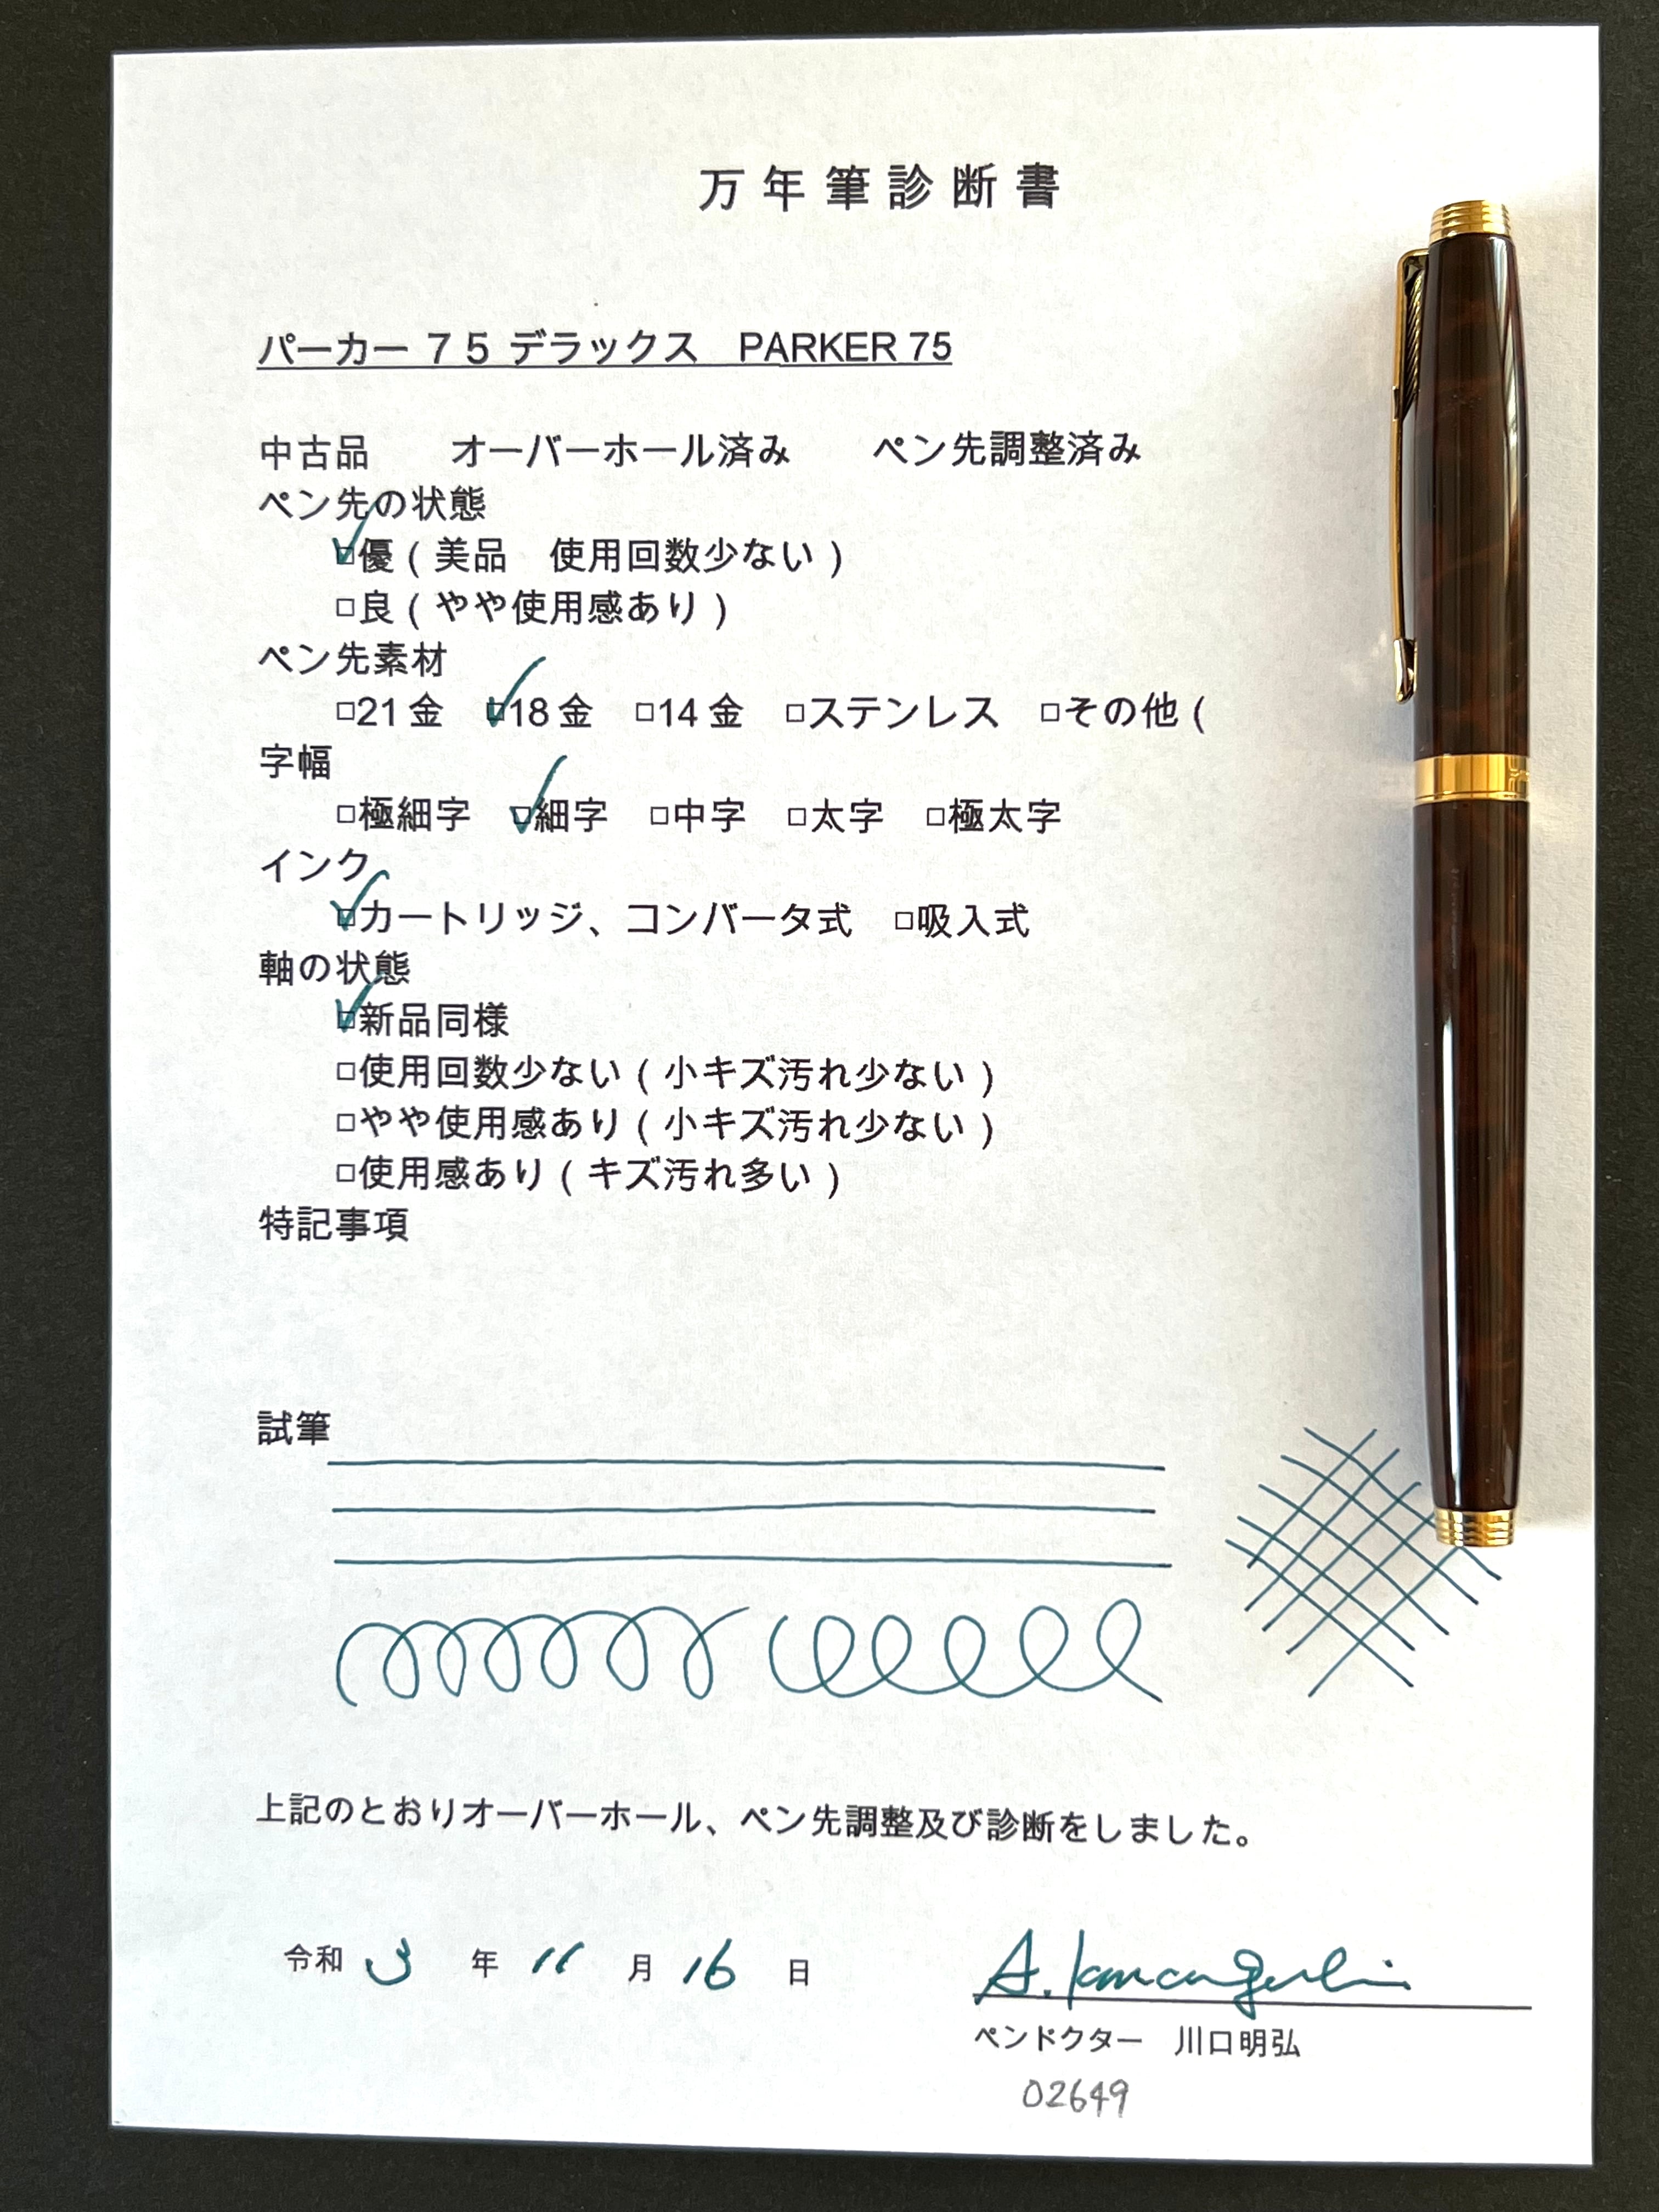 万年筆診断書
パーカー７５ デラックス　PARKER 75
中古品　　オーバーホール済み　　ペン先調整済み
ペン先の状態
☑優（美品　使用回数少ない）
□良（やや使用感あり）
ペン先素材
□21金　☑18金　□14金　□ステンレス　□その他（
字幅
□極細字　☑細字　□中字　□太字　□極太字
インク
☑カートリッジ、コンバータ式　□吸入式
軸の状態
☑新品同様
□使用回数少ない（小キズ汚れ少ない）
□やや使用感あり（小キズ汚れ少ない）
□使用感あり（キズ汚れ多い）
特記事項
試筆
上記のとおりオーバーホール、ペン先調整及び診断をしました。
令和 3 年 11 月 16 日
A. Kawaguchi
ペンドクター　川口明弘
02649